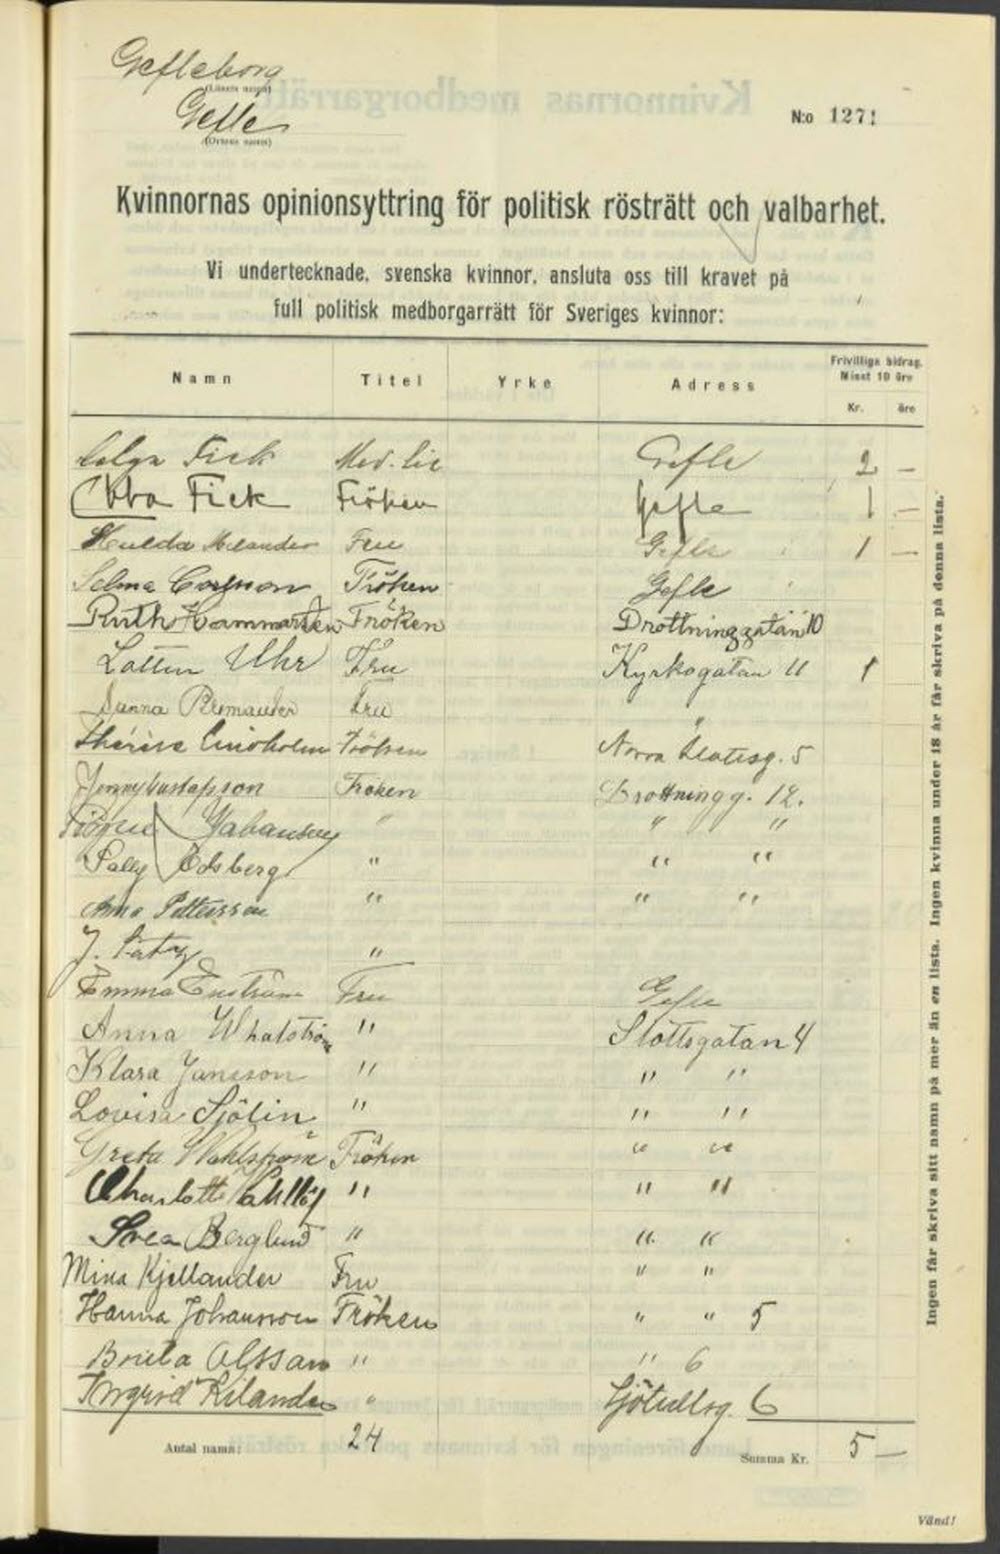 Gefleborg
(Länets namn)
Gefle
(Ortens namn)
N:o 1271
Kvinnornas opinionsyttring för politisk rösträtt och valbarhet.
Vi undertecknade, svenska kvinnor, ansluta oss till kravet på
full politisk medborgarrätt för Sveriges kvinnor:
Namn Titel Yrke Adress Frivilliga bidrag. Minst 10 öre
Kr. öre
Fick Med. lic Gefle 2 —
Ebba Fick Fröken Gefle 1 —
Hulda Melander Fru Gefle 1 —
Selma Carlsson Fröken Gefle
Ruth Hammarsten Fröken Drottninggatan 10
Lotten Uhr Fru Kyrkogatan 11 1
Fru "
Thérèse Fröken Norra Slottsg. 5
Jenny Gustafsson Fröken Drottningg. 12.
" " "
Sally Edsberg " " "
Anna Pettersson " " "
J. "
Emma Enström Fru Gefle
Anna Whalström " Slottsgatan 4
Klara Janson " " "
Lovisa Sjölin " " "
Greta Wahlström Fröken " "
Charlotte " " "
Svea Berglund " " "
Mina Kjellander Fru " "
Hanna Johansson Fröken " " 5
Olsson " " 6
Ingrid Kilander " 6
Antal namn: 24 Summa Kr. 5 —
Vänd!
Ingen får skriva sitt namn på mer än en lista. Ingen kvinna under 18 år får skriva på denna lista.